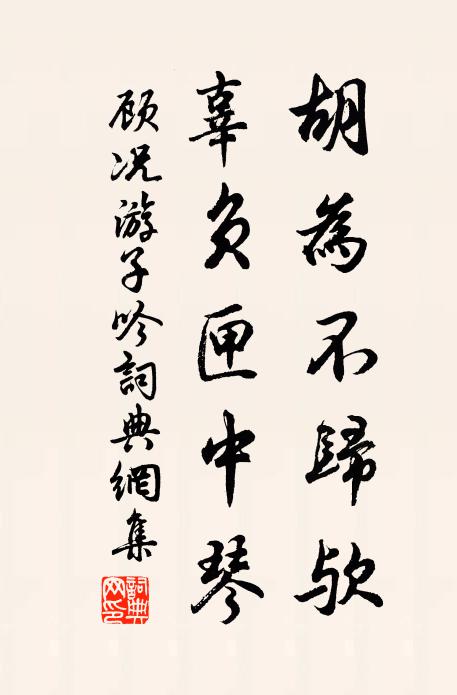 胡為不歸欤
辜负匣中琴
顾况游子吟詞典網集
詞典网印